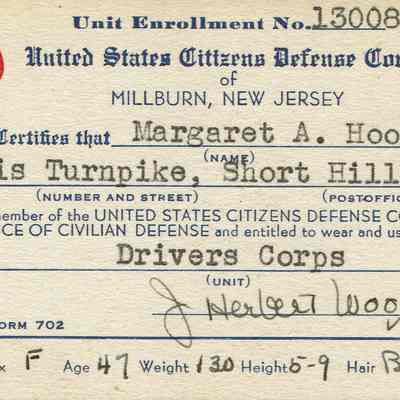 Unit Enrollment No. 13008
United States Citizens Defense Cor
of
MILLBURN, NEW JERSEY
Certifies that Margaret A. Hoo
(NAME)
is Turnpike, Short Hill
(NUMBER AND STREET) (POST-OFFIC
member of the UNITED STATES CITIZENS DEFENSE CO
ICE OF CIVILIAN DEFENSE and entitled to wear and us
Drivers Corps
(UNIT)
J Herbert Woo
ORM 702
x F Age 47 Weight 130 Height 5-9 Hair B